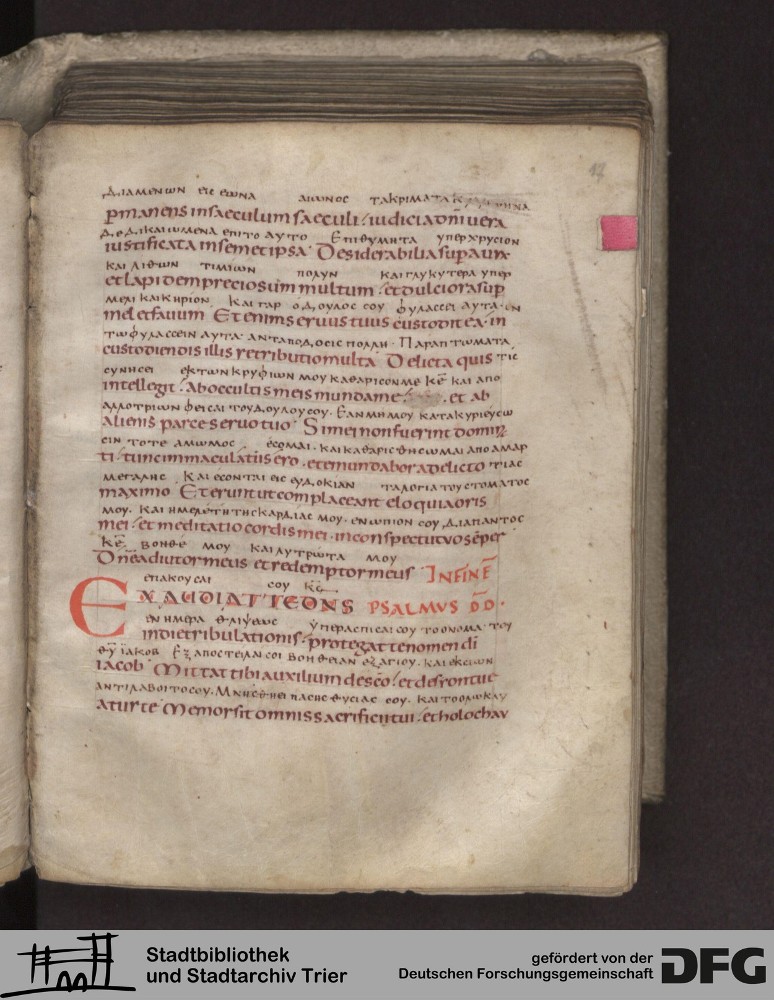 17
ΔΙΑΜΕΝωΝ ΕΙC ΕωΝΑ ΑΙωΝΟC ΤΑΚΡΙΜΑΤΑ
pmanens insaeculum saeculi · iudiciadn̄i uera
ΔΕΔΙΚΑΙωΜΕΝΑ ΕΠΙΤΟ ΑΥΤΟ ΕΠΙΘΥΜΗΤΑ ΥΠΕΡΧΡΥCΙΟΝ
iustificata insemetipsa · Desiderabilia sup aurū
ΚΑΙ ΛΙΘΟΝ ΤΙΜΙωΝ ΠΟΛΥΝ ΚΑΙ ΓΛΥΚΥΤΕΡΑ ΥΠΕΡ
et lapidem preciosum multum · et dulciora sup
ΜΕΛΙ ΚΑΙ ΚΗΡΙΟΝ ΚΑΙ ΓΑΡ Ο ΔΟΥΛΟC CΟΥ ΦΥΛΑCCΕΙ ΑΥΤΑ · ΕΝ
mel et fauum Et enim seruus tuus custodit ea · in
ΤωΦΥΛΑCCΕΙΝ ΑΥΤΑ · ΑΝΤΑΠΟΔΟCΙC ΠΟΛΛΗ · ΠΑΡΑΠΤωΜΑΤΑ
custodiendis illis retributio multa · Delicta quis ΤΙC
CΥΝΗCΕΙ ΕΚΤωΝ ΚΡΥΦΙωΝ ΜΟΥ ΚΑΘΑΡΙCΟΝ ΜΕ ΚΕ̄ ΚΑΙ ΑΠΟ
intellegit · Ab occultis meis munda me · et ab
ΑΛΛΟΤΡΙωΝ ΦΕΙCΑΙ ΤΟΥ ΔΟΥΛΟΥ CΟΥ · ΕΑΝ ΜΗ ΜΟΥ ΚΑΤΑΚΥΡΙΕΥCω
alienis parce seruo tuo · Si mei non fuerint domina
CΙΝ ΤΟΤΕ ΑΜωΜΟC ΕCΟΜΑΙ · ΚΑΙ ΚΑΘΑΡΙCΘΗCωΜΑΙ ΑΠΟ ΑΜΑΡ
ti · tunc inmaculatus ero · et emundabor a delicto ΤΙΑC
ΜΕΓΑΛΗC ΚΑΙ ΕCΟΝΤΑΙ ΕΙC ΕΥΔΟΚΙΑΝ ΤΑ ΛΟΓΙΑ ΤΟΥ CΤΟΜΑΤΟC
maximo Et erunt ut complaceant eloquia oris
ΜΟΥ · ΚΑΙ Η ΜΕΛΕΤΗ ΤΗC ΚΑΡΔΙΑC ΜΟΥ · ΕΝωΠΙΟΝ CΟΥ ΔΙΑΠΑΝΤΟC
mei · et meditatio cordis mei · in conspectu tuo sēper
ΚΕ̄ ΒΟΗΘΕ ΜΟΥ ΚΑΙ ΛΥΤΡωΤΑ ΜΟΥ
Dn̄e adiutor meus et redemptor meus INFINĒ
ΕΠΑΚΟΥCΑΙ CΟΥ ΚC̄
EXAUDIAT TE DN̄S PSALMUS D̄D̄ ·
ΕΝ ΗΜΕΡΑ ΘΛΙΨΕωC ΥΠΕΡΑCΠΙCΑΙ CΟΥ ΤΟ ΟΝΟΜΑ · ΤΟΥ
in die tribulationis · protegat te nomen di̅
ΘῩ ΙΑΚΟΒ ΕΞΑΠΟCΤΕΙΛΑΙ CΟΙ ΒΟΗΘΕΙΑΝ ΕΞ ΑΓΙΟΥ · ΚΑΙ ΕΚ CΙωΝ
iacob · Mittat tibi auxilium de sc̄o · et de sion tue
ΑΝΤΙΛΑΒΟΙΤΟ CΟΥ · ΜΝΗCΘΗΕΙ ΠΑCΗC ΘΥCΙΑC CΟΥ · ΚΑΙ ΤΟ ΟΛωΚΑΥ
atur te Memor sit omnis sacrificii tui · et holochau
Stadtbibliothek
und Stadtarchiv Trier
gefördert von der
Deutschen Forschungsgemeinschaft
DFG